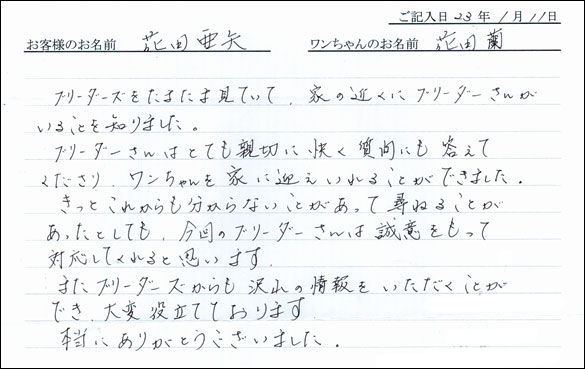 ご記入日 23 年 1 月 11 日
お客様のお名前 花田 亜矢 ワンちゃんのお名前 花田 蘭
ブリーダーズをたまたま見ていて、家の近くにブリーダーさんが
いることを知りました。
ブリーダーさんはとても親切に快く質問にも答えて
くださり、ワンちゃんを家に迎えいれることができました。
きっとこれからも分からないことがあって尋ねることが
あったとしても、今回のブリーダーさんは誠意をもって
対応してくれると思います。
またブリーダーズからも沢山の情報をいただくことが
でき、大変役立てております。
本当にありがとうございました。